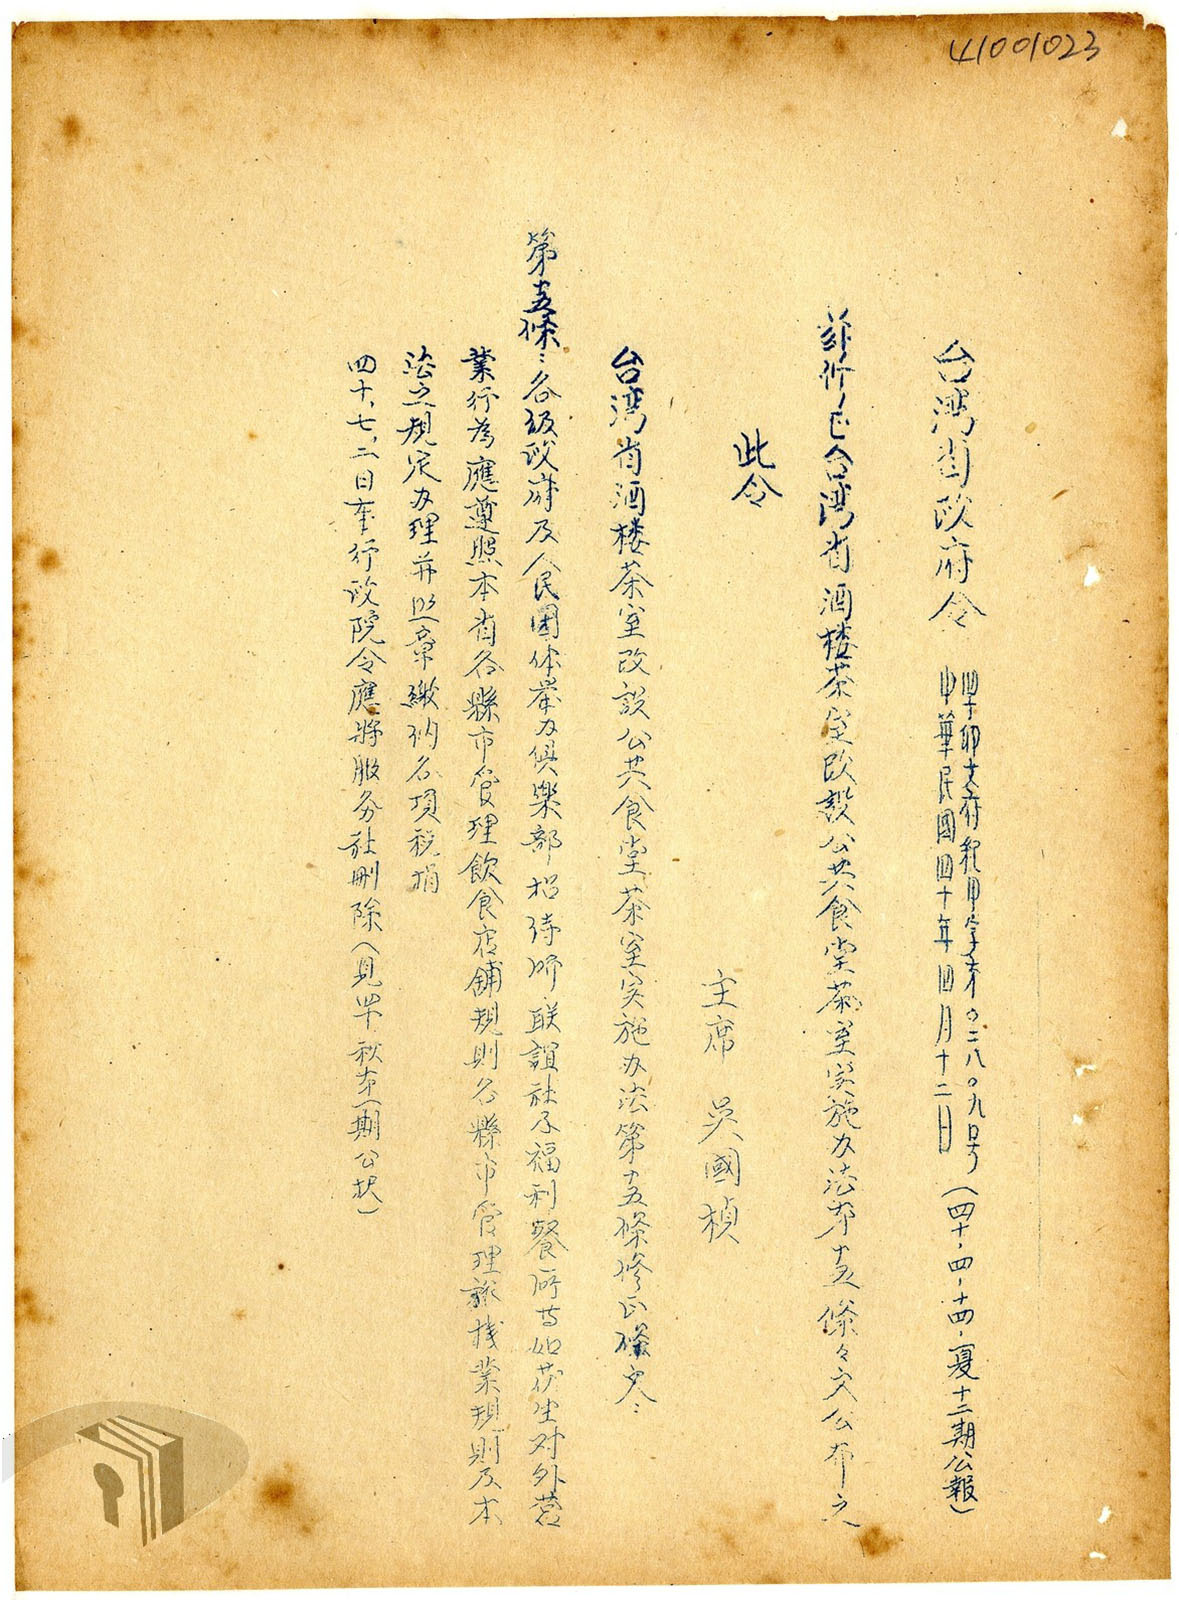 41001023
台湾省政府令
四十卯文府纪甲字第〇二八〇九号
中華民國四十年四月十二日
(四十、四、十四、夏十二期公報)
兹修正台湾省酒楼茶室改設公共食堂茶室実施办法第十五條々文公布之
此令
主席 吳國楨
台湾省酒楼茶室改設公共食堂茶室实施办法第十五條修正條文:
第十五條:各级政府及人民團体举办俱樂部招待所联誼社及福利餐所等如發生对外营
業行為應遵照本省各縣市管理飲食店舖規則各縣市管理旅栈業規則及本
法之規定办理并照章繳纳各項税捐
四十、七、二日奉行政院令應將服务社删除(見四十秋第一期公报)